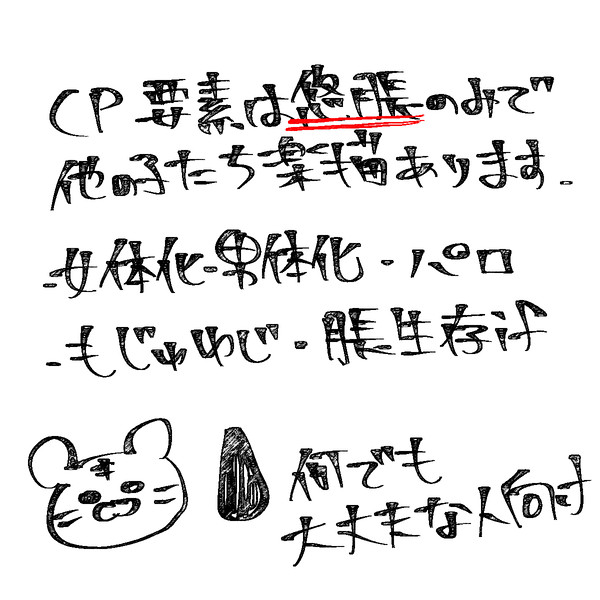 CP要素は悠脹のみで
他の子たち楽描あります.
・女体化・男体化・パロ
・もじゅゆじ・脹生存if
何でも
大丈夫な人向け